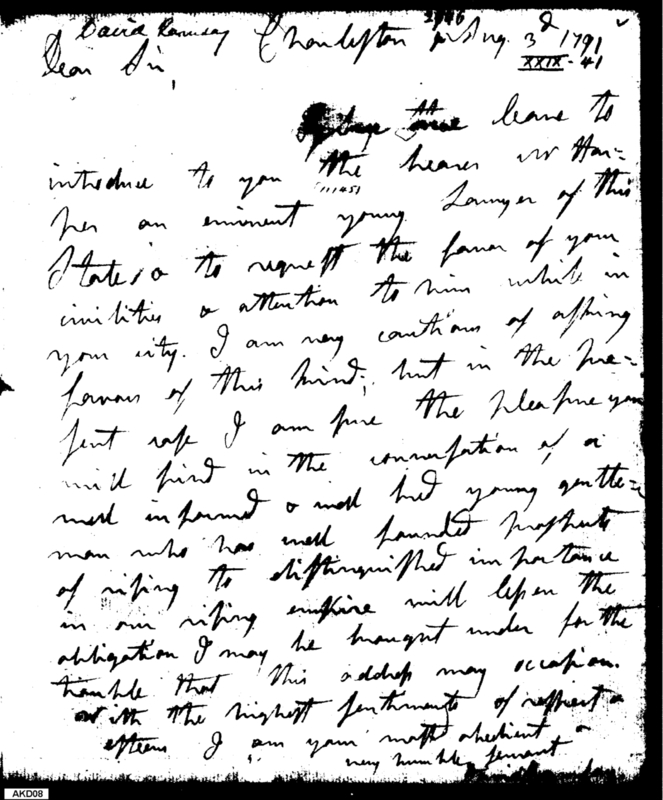 2946
David Ramsay Charleston Aug. 3d 1791
XXIX-41
Dear Sir,
I beg leave to
introduce to you the bearer Mr Har=
(11145)
per an eminent young Lawyer of this
State, & to request the favor of your
civilities & attention to him while in
your city. I am very cautious of asking
favours of this kind; but in the pre=
sent case I am sure the pleasure you
will find in the conversation of a
well informed & well bred young gentle=
man who has well founded prospects
of rising to distinguished importance
in our rising empire will lessen the
obligation I may be brought under for the
trouble that this address may occasion.
With the highest sentiments of respect &
esteem I am your most obedient &
very humble servant
AKD08